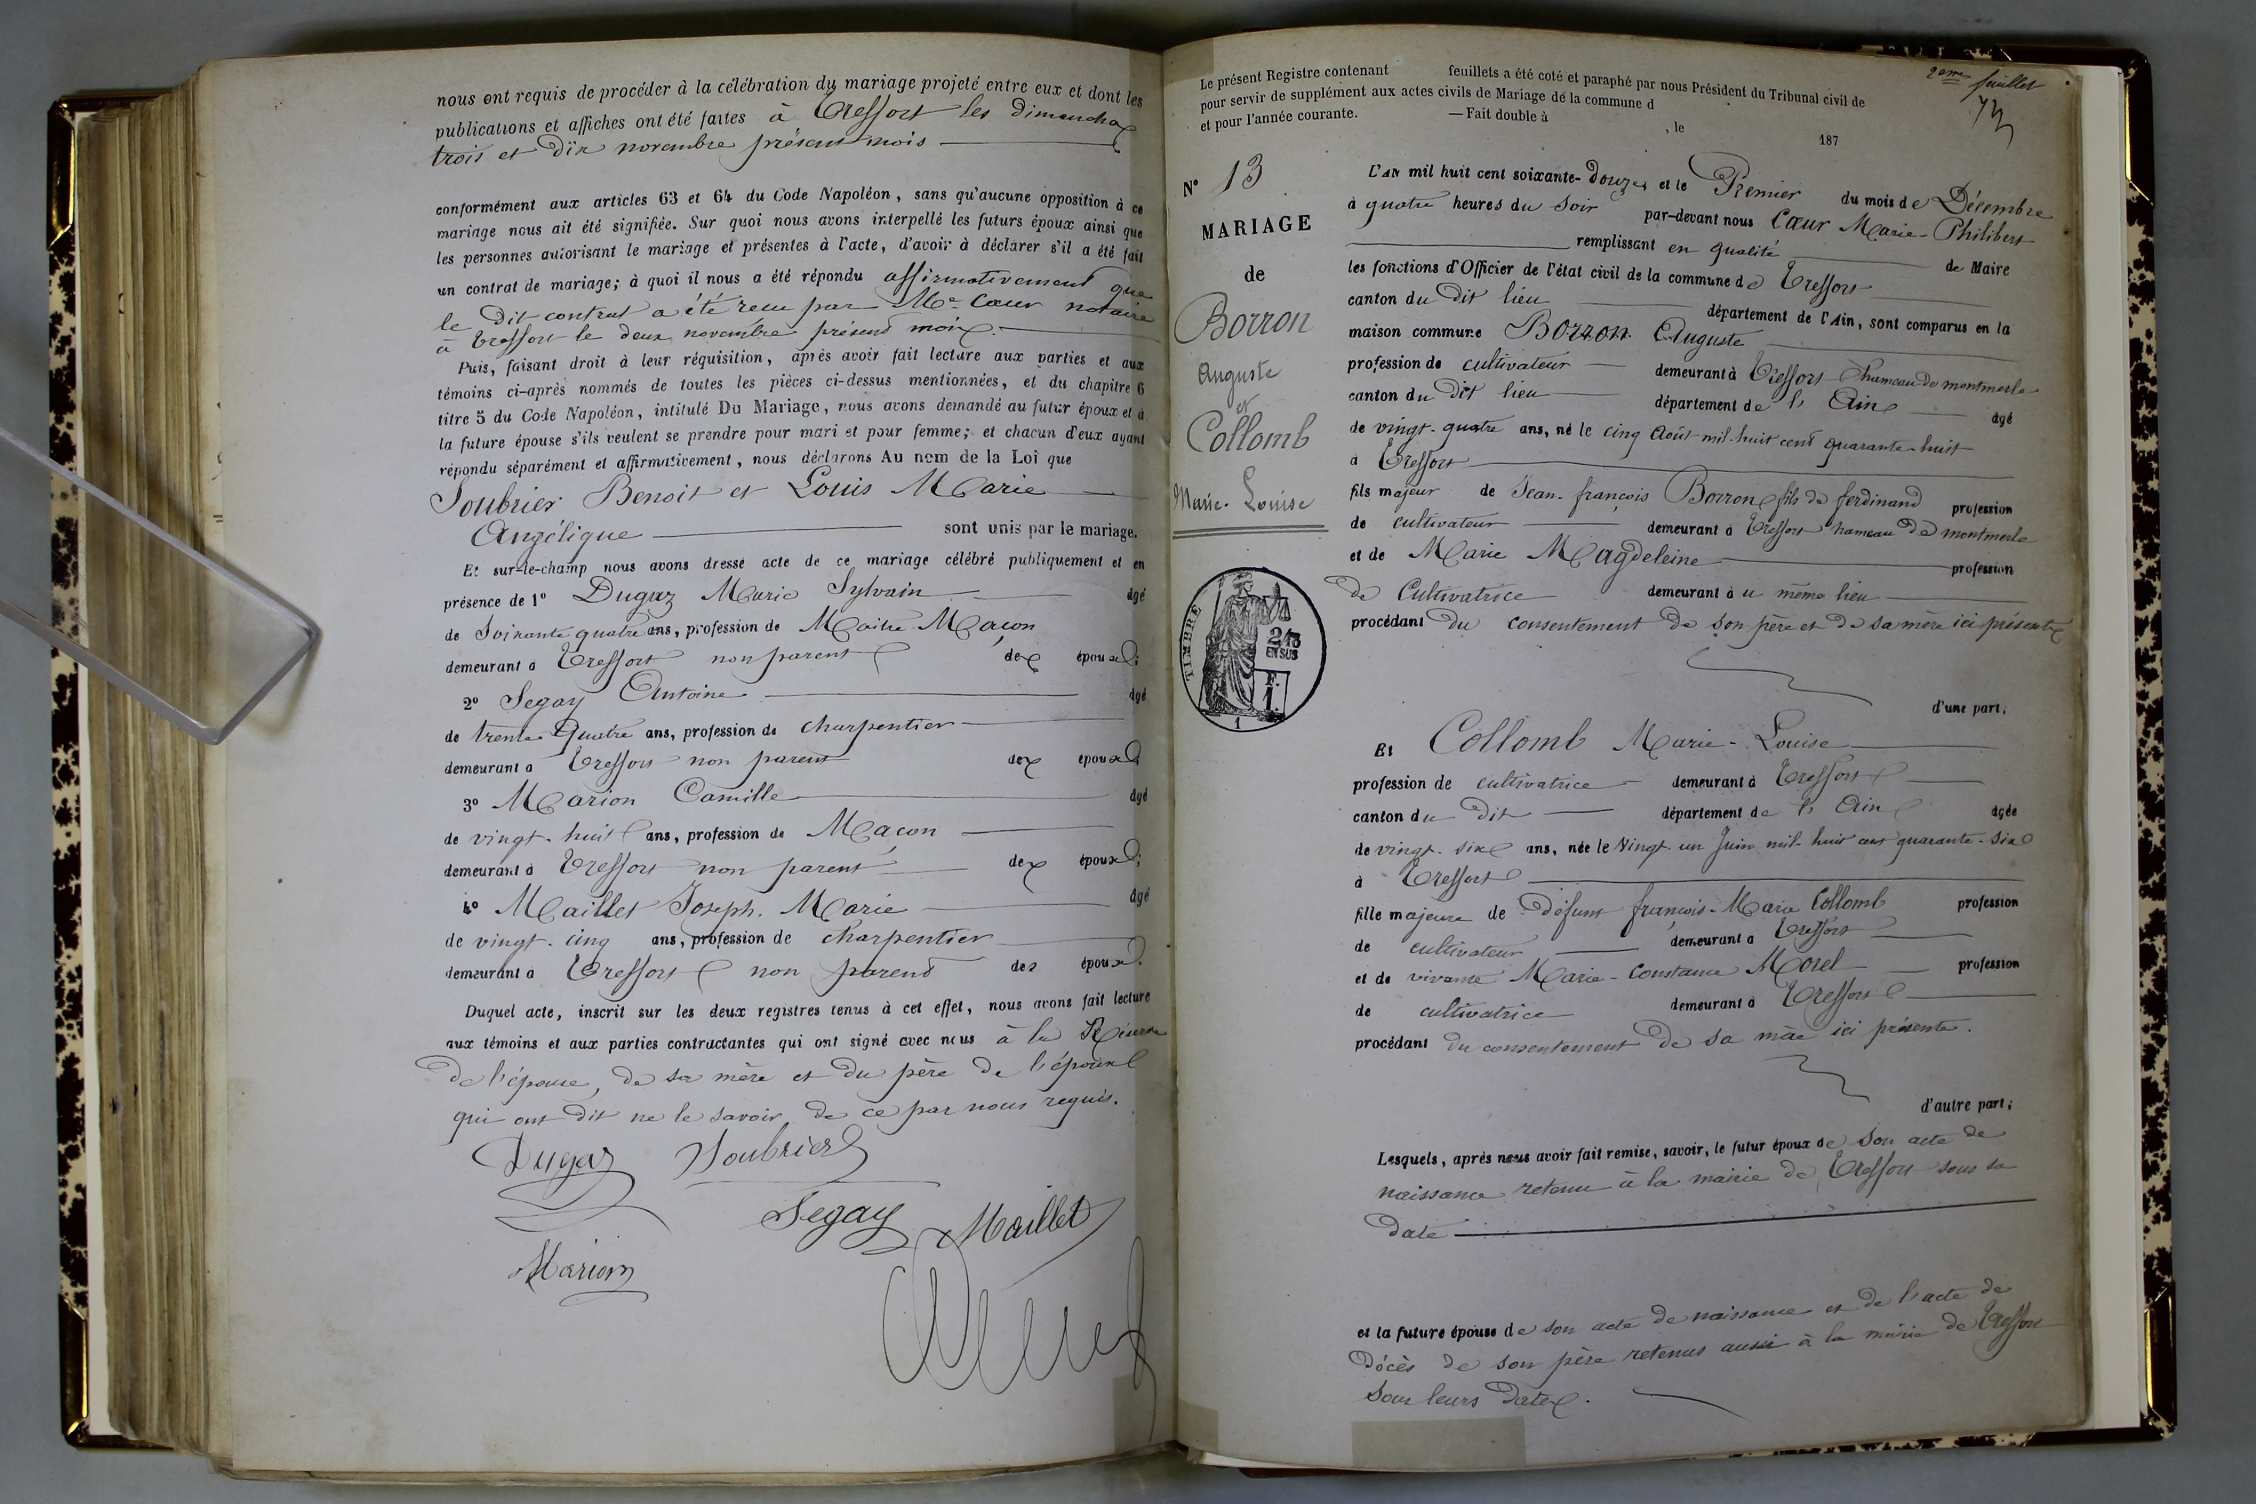 nous ont requis de procéder à la célébration du mariage projeté entre eux et dont les
publications et affiches ont été faites à Treffort les dimanches
trois et dix novembre présent mois
conformément aux articles 63 et 64 du Code Napoléon, sans qu'aucune opposition à ce
mariage nous ait été signifiée. Sur quoi nous avons interpellé les futurs époux ainsi que
les personnes autorisant le mariage et présentes à l'acte, d'avoir à déclarer s'il a été fait
un contrat de mariage; à quoi il nous a été répondu affirmativement que
le dit contrat a été reçu par Me Cœur notaire
à Treffort le deux novembre présent mois.
Puis, faisant droit à leur réquisition, après avoir fait lecture aux parties et aux
témoins ci-après nommés de toutes les pièces ci-dessus mentionnées, et du chapitre 6
titre 5 du Code Napoléon, intitulé Du Mariage, nous avons demandé au futur époux et à
la future épouse s'ils veulent se prendre pour mari et pour femme; et chacun d'eux ayant
répondu séparément et affirmativement, nous déclarons Au nom de la Loi que
Soubrier Benoit et Louis Marie
Angélique sont unis par le mariage.
Et sur-le-champ nous avons dressé acte de ce mariage célébré publiquement et en
présence de 1° Dugaz Marie Sylvain âgé
de Soixante quatre ans, profession de Maitre Maçon
demeurant à Treffort non parent des époux;
2° Segay Antoine âgé
de trente quatre ans, profession de charpentier
demeurant à Treffort non parent des époux;
3° Marion Camille âgé
de vingt-huit ans, profession de Maçon
demeurant à Treffort non parent des époux;
4° Maillet Joseph. Marie âgé
de vingt-cinq ans, profession de charpentier
demeurant à Treffort non parent des époux.
Duquel acte, inscrit sur les deux registres tenus à cet effet, nous avons fait lecture
aux témoins et aux parties contractantes qui ont signé avec nous à la Réserve
de l'épouse, de sa mère et du père de l'époux
qui ont dit ne le savoir, de ce par nous requis.
Dugaz Soubrier
Segay Maillet
Marion
Le présent Registre contenant feuillets a été coté et paraphé par nous Président du Tribunal civil de
pour servir de supplément aux actes civils de Mariage de la commune d
et pour l'année courante. — Fait double à , le 187
2eme feuillet
N° 13
MARIAGE
de
Borron
Auguste
et
Collomb
Marie-Louise
TIMBRE
2/10
EN SUS
F.
1.
1
L'AN mil huit cent soixante-douze, et le Premier du mois de Décembre
à quatre heures du soir par-devant nous Cœur Marie-Philibert
remplissant en qualité de Maire
les fonctions d'Officier de l'état civil de la commune de Treffort
canton du dit lieu département de l'Ain, sont comparus en la
maison commune Borron Auguste
profession de cultivateur demeurant à Treffort hameau de montmerle
canton du dit lieu département de l'Ain âgé
de vingt-quatre ans, né le cinq Août mil-huit cent quarante-huit
à Treffort
fils majeur de Jean-françois Borron fils de ferdinand profession
de cultivateur demeurant à Treffort hameau de montmerle
et de Marie Magdeleine profession
de Cultivatrice demeurant à u même lieu
procédant du consentement de son père et de sa mère ici présents
d'une part;
Et Collomb Marie-Louise
profession de cultivatrice demeurant à Treffort
canton du dit département de l'Ain âgée
de vingt-six ans, née le Vingt un Juin mil-huit cent quarante-six
à Treffort
fille majeure de défunt françois-Marie Collomb profession
de cultivateur demeurant à Treffort
et de vivante Marie-Constance Morel profession
de cultivatrice demeurant à Treffort
procédant du consentement de sa mère ici présente.
d'autre part;
Lesquels, après nous avoir fait remise, savoir, le futur époux de son acte de
naissance retenu à la mairie de Treffort sous sa
date
et la future épouse de son acte de naissance et de l'acte de
décès de son père retenus aussi à la mairie de Treffort
sous leurs dates.